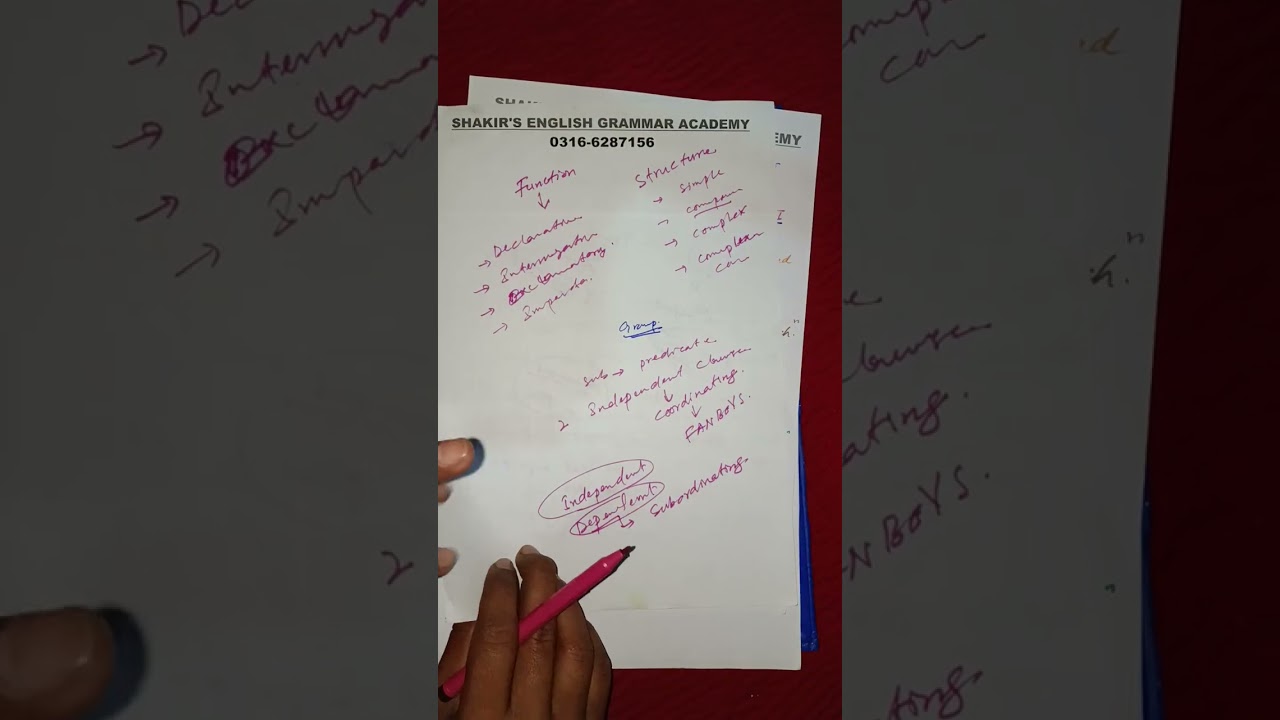 SHAKIR'S ENGLISH GRAMMAR ACADEMY
0316-6287156
EMY
Function
↓
→ Declarative
→ Interrogative
→ Exclamatory.
→
Structure
→ Simple
→ compoun
→ complex
→ complex
com
Group.
sub → predicate
2 Independent clause
↓
coordinating.
↓
FANBOYS.
Independent
Dependent
↳ Subordinating.